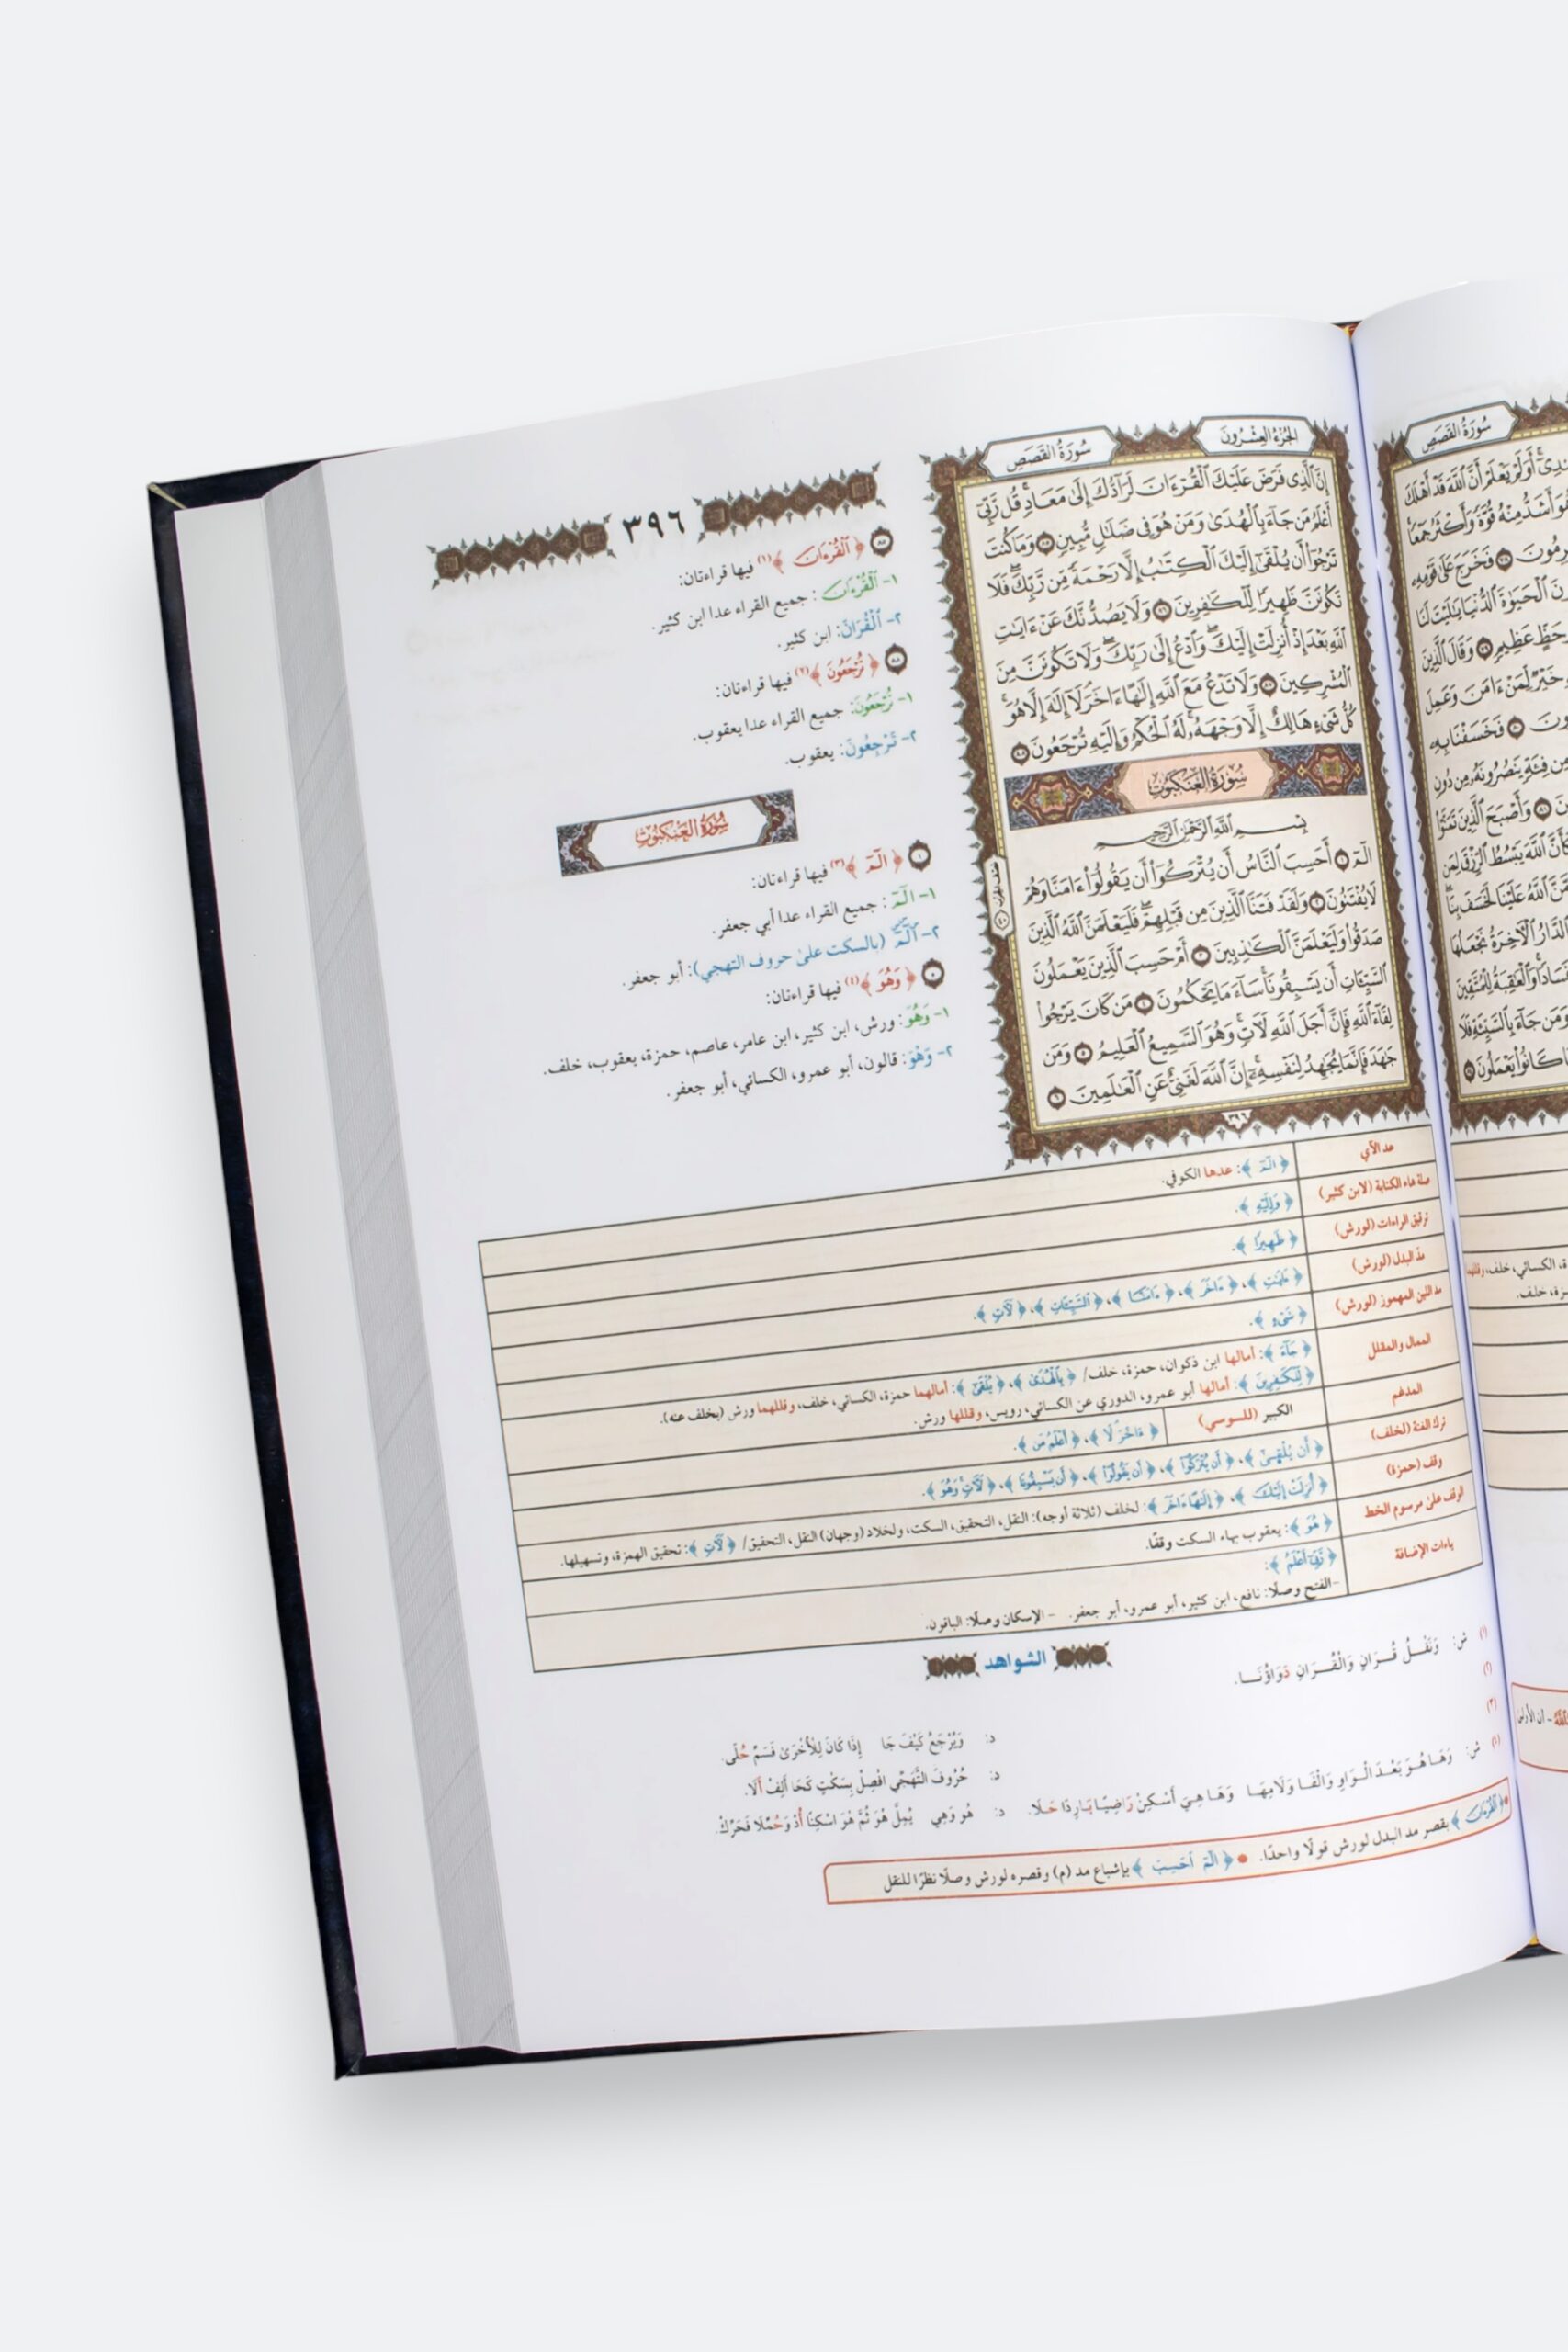 سُورَةُ القَصَصِ
الجُزْءُ العِشْرُونَ
إِنَّ ٱلَّذِى فَرَضَ عَلَيْكَ ٱلْقُرْءَانَ لَرَآدُّكَ إِلَىٰ مَعَادٍ ۚ قُل رَّبِّىٓ
أَعْلَمُ مَن جَآءَ بِٱلْهُدَىٰ وَمَنْ هُوَ فِى ضَلَـٰلٍ مُّبِينٍ ٨٥ وَمَا كُنتَ
تَرْجُوٓا۟ أَن يُلْقَىٰٓ إِلَيْكَ ٱلْكِتَـٰبُ إِلَّا رَحْمَةً مِّن رَّبِّكَ ۖ فَلَا
تَكُونَنَّ ظَهِيرًا لِّلْكَـٰفِرِينَ ٨٦ وَلَا يَصُدُّنَّكَ عَنْ ءَايَـٰتِ
ٱللَّهِ بَعْدَ إِذْ أُنزِلَتْ إِلَيْكَ ۖ وَٱدْعُ إِلَىٰ رَبِّكَ ۖ وَلَا تَكُونَنَّ مِنَ
ٱلْمُشْرِكِينَ ٨٧ وَلَا تَدْعُ مَعَ ٱللَّهِ إِلَـٰهًا ءَاخَرَ ۘ لَآ إِلَـٰهَ إِلَّا هُوَ ۚ
كُلُّ شَىْءٍ هَالِكٌ إِلَّا وَجْهَهُۥ ۚ لَهُ ٱلْحُكْمُ وَإِلَيْهِ تُرْجَعُونَ ٨٨
سُورَةُ العَنكَبُوتِ
بِسْمِ ٱللَّهِ ٱلرَّحْمَـٰنِ ٱلرَّحِيمِ
الٓمٓ ١ أَحَسِبَ ٱلنَّاسُ أَن يُتْرَكُوٓا۟ أَن يَقُولُوٓا۟ ءَامَنَّا وَهُمْ
لَا يُفْتَنُونَ ٢ وَلَقَدْ فَتَنَّا ٱلَّذِينَ مِن قَبْلِهِمْ ۖ فَلَيَعْلَمَنَّ ٱللَّهُ ٱلَّذِينَ
صَدَقُوا۟ وَلَيَعْلَمَنَّ ٱلْكَـٰذِبِينَ ٣ أَمْ حَسِبَ ٱلَّذِينَ يَعْمَلُونَ
ٱلسَّيِّـَٔاتِ أَن يَسْبِقُونَا ۚ سَآءَ مَا يَحْكُمُونَ ٤ مَن كَانَ يَرْجُوا۟
لِقَآءَ ٱللَّهِ فَإِنَّ أَجَلَ ٱللَّهِ لَـَٔاتٍ ۚ وَهُوَ ٱلسَّمِيعُ ٱلْعَلِيمُ ٥ وَمَن
جَـٰهَدَ فَإِنَّمَا يُجَـٰهِدُ لِنَفْسِهِۦٓ ۚ إِنَّ ٱللَّهَ لَغَنِىٌّ عَنِ ٱلْعَـٰلَمِينَ ٦
٣٩٦
٣٩٦
٨٥ ﴿ ٱلْقُرْءَانَ ﴾(١) فيها قراءتان:
١- ٱلْقُرْءَانَ: جميع القراء عدا ابن كثير.
٢- ٱلْقُرَانَ: ابن كثير.
٨٨ ﴿ تُرْجَعُونَ ﴾(٢) فيها قراءتان:
١- تُرْجَعُونَ: جميع القراء عدا يعقوب.
٢- تَرْجِعُونَ: يعقوب.
سُورَةُ العَنكَبُوتِ
١ ﴿ الٓمٓ ﴾(٣) فيها قراءتان:
١- الٓمٓ: جميع القراء عدا أبي جعفر.
٢- الٓمٓ (بالسكت على حروف التهجي): أبو جعفر.
٥ ﴿ وَهُوَ ﴾(٤) فيها قراءتان:
١- وَهُوَ: ورش، ابن كثير، ابن عامر، عاصم، حمزة، يعقوب، خلف.
٢- وَهْوَ: قالون، أبو عمرو، الكسائي، أبو جعفر.
عد الآي ﴿ الٓمٓ ﴾: عدها الكوفي.
صلة هاء الكناية (لابن كثير) ﴿ وَإِلَيْهِ ﴾.
ترقيق الراءات (لورش) ﴿ ظَهِيرًا ﴾.
مد البدل (لورش) ﴿ ءَايَـٰتِ ﴾، ﴿ ءَاخَرَ ﴾، ﴿ ءَامَنَّا ﴾، ﴿ ٱلسَّيِّـَٔاتِ ﴾، ﴿ لَـَٔاتٍ ﴾.
مد اللين المهموز (لورش) ﴿ شَىْءٍ ﴾.
الممال والمقلل ﴿ جَآءَ ﴾: أمالها ابن ذكوان، حمزة، خلف/ ﴿ بِٱلْهُدَىٰ ﴾، ﴿ يُلْقَىٰٓ ﴾: أمالهما حمزة، الكسائي، خلف، وقللهما ورش (بخلف عنه).
﴿ لِّلْكَـٰفِرِينَ ﴾: أمالها أبو عمرو، الدوري عن الكسائي، رويس، وقللها ورش.
المدغم الكبير (للسوسي) ﴿ ءَاخَرَ لَا ﴾، ﴿ أَعْلَمُ مَن ﴾.
ترك الغنة (لخلف) ﴿ أَن يُلْقَىٰٓ ﴾، ﴿ أَن يُتْرَكُوٓا۟ ﴾، ﴿ أَن يَقُولُوٓا۟ ﴾، ﴿ أَن يَسْبِقُونَا ﴾، ﴿ لَـَٔاتٍ وَهُوَ ﴾.
وقف (حمزة) ﴿ أُنزِلَتْ إِلَيْكَ ﴾، ﴿ إِلَـٰهًا ءَاخَرَ ﴾: لخلف (ثلاثة أوجه): النقل، التحقيق، السكت، ولخلاد (وجهان) النقل، التحقيق/ ﴿ لَـَٔاتٍ ﴾: تحقيق الهمزة، وتسهيلها.
الوقف على مرسوم الخط ﴿ هُوَ ﴾: يعقوب بهاء السكت وقفًا.
ياءات الإضافة ﴿ رَّبِّىٓ أَعْلَمُ ﴾:
-الفتح وصلًا: نافع، ابن كثير، أبو عمرو، أبو جعفر. - الإسكان وصلًا: الباقون.
الشواهد
(١) ش: وَنَقْلُ قُـرَانٍ وَالْقُـرَانِ دَوَاؤُنَـا.
(٢) د: وَيُرْجَعُ كَيْفَ جَا إِذَا كَانَ لِلْأُخْرَىٰ فَسَمِّ حُلًى.
(٣) د: حُرُوفَ التَّهَجِّي افْصِلْ بِسَكْتٍ كَحَا أَلِفْ أَلَا.
(٤) ش: وَهَـا هُـوَ بَعْـدَ الْـوَاوِ وَالْفَـا وَلَامِهَـا وَهَـا هِيَ أَسْكِنْ رَاضِيًـا بَـارِدًا حَـلَا. د: هُو وَهِي يُمِلَّ هُوَ ثُمَّ هُوَ اسْكِنًا أُدْ وَحُمِّلَا فَحَرِّكْ.
• ﴿ ٱلْقُرْءَانَ ﴾ بقصر مد البدل لورش قولًا واحدًا. • ﴿ الٓمٓ أَحَسِبَ ﴾ بإشباع مد (م) وقصره لورش وصلًا نظرًا للنقل
سُورَةُ القَصَصِ